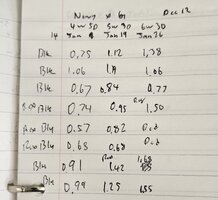 Nancy # 61 Dec 12
4w 3D 5w 3D 6w 3D
14 Jan 9 Jan 19 Jan 26
Blk 0.75 1.12 1.38
Blk 1.06 1.06
Blk 0.67 0.84 0.77
Blk 0.74 0.95 1.50
Blk 0.57 0.82 Died
Blk 0.68 0.68 Died
Blk 0.91 1.42 1.68
Blk 0.99 1.25 1.55